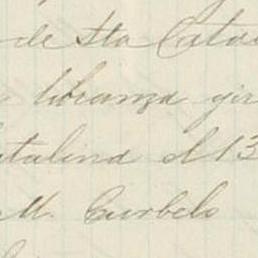 de Sta Cata
libranza gir
atalina el 13
M. Curbelo